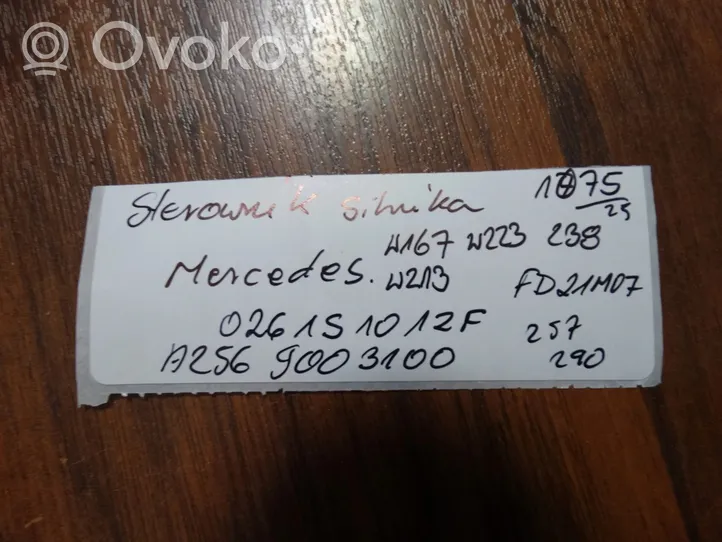 Ovoko
Sterownik silnika 1075/25
W167 W223 238
Mercedes. W213 FD21M07
0261S1012F 257
A256 9003100 290